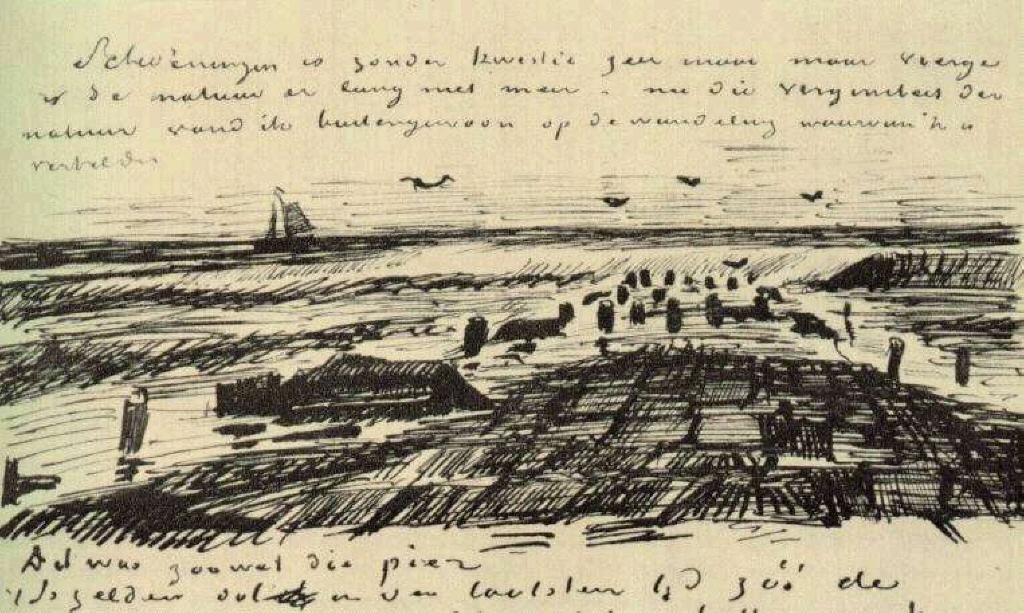 Scheveningen is zonder kwestie zeer mooi maar vierge
is de natuur er lang niet meer. nu die verginiteit der
natuur vond ik buitengewoon op de wandeling waarvan ik u
vertelde
Dit was zoowat die pier
Zelden in den laatsten tijd zóó de